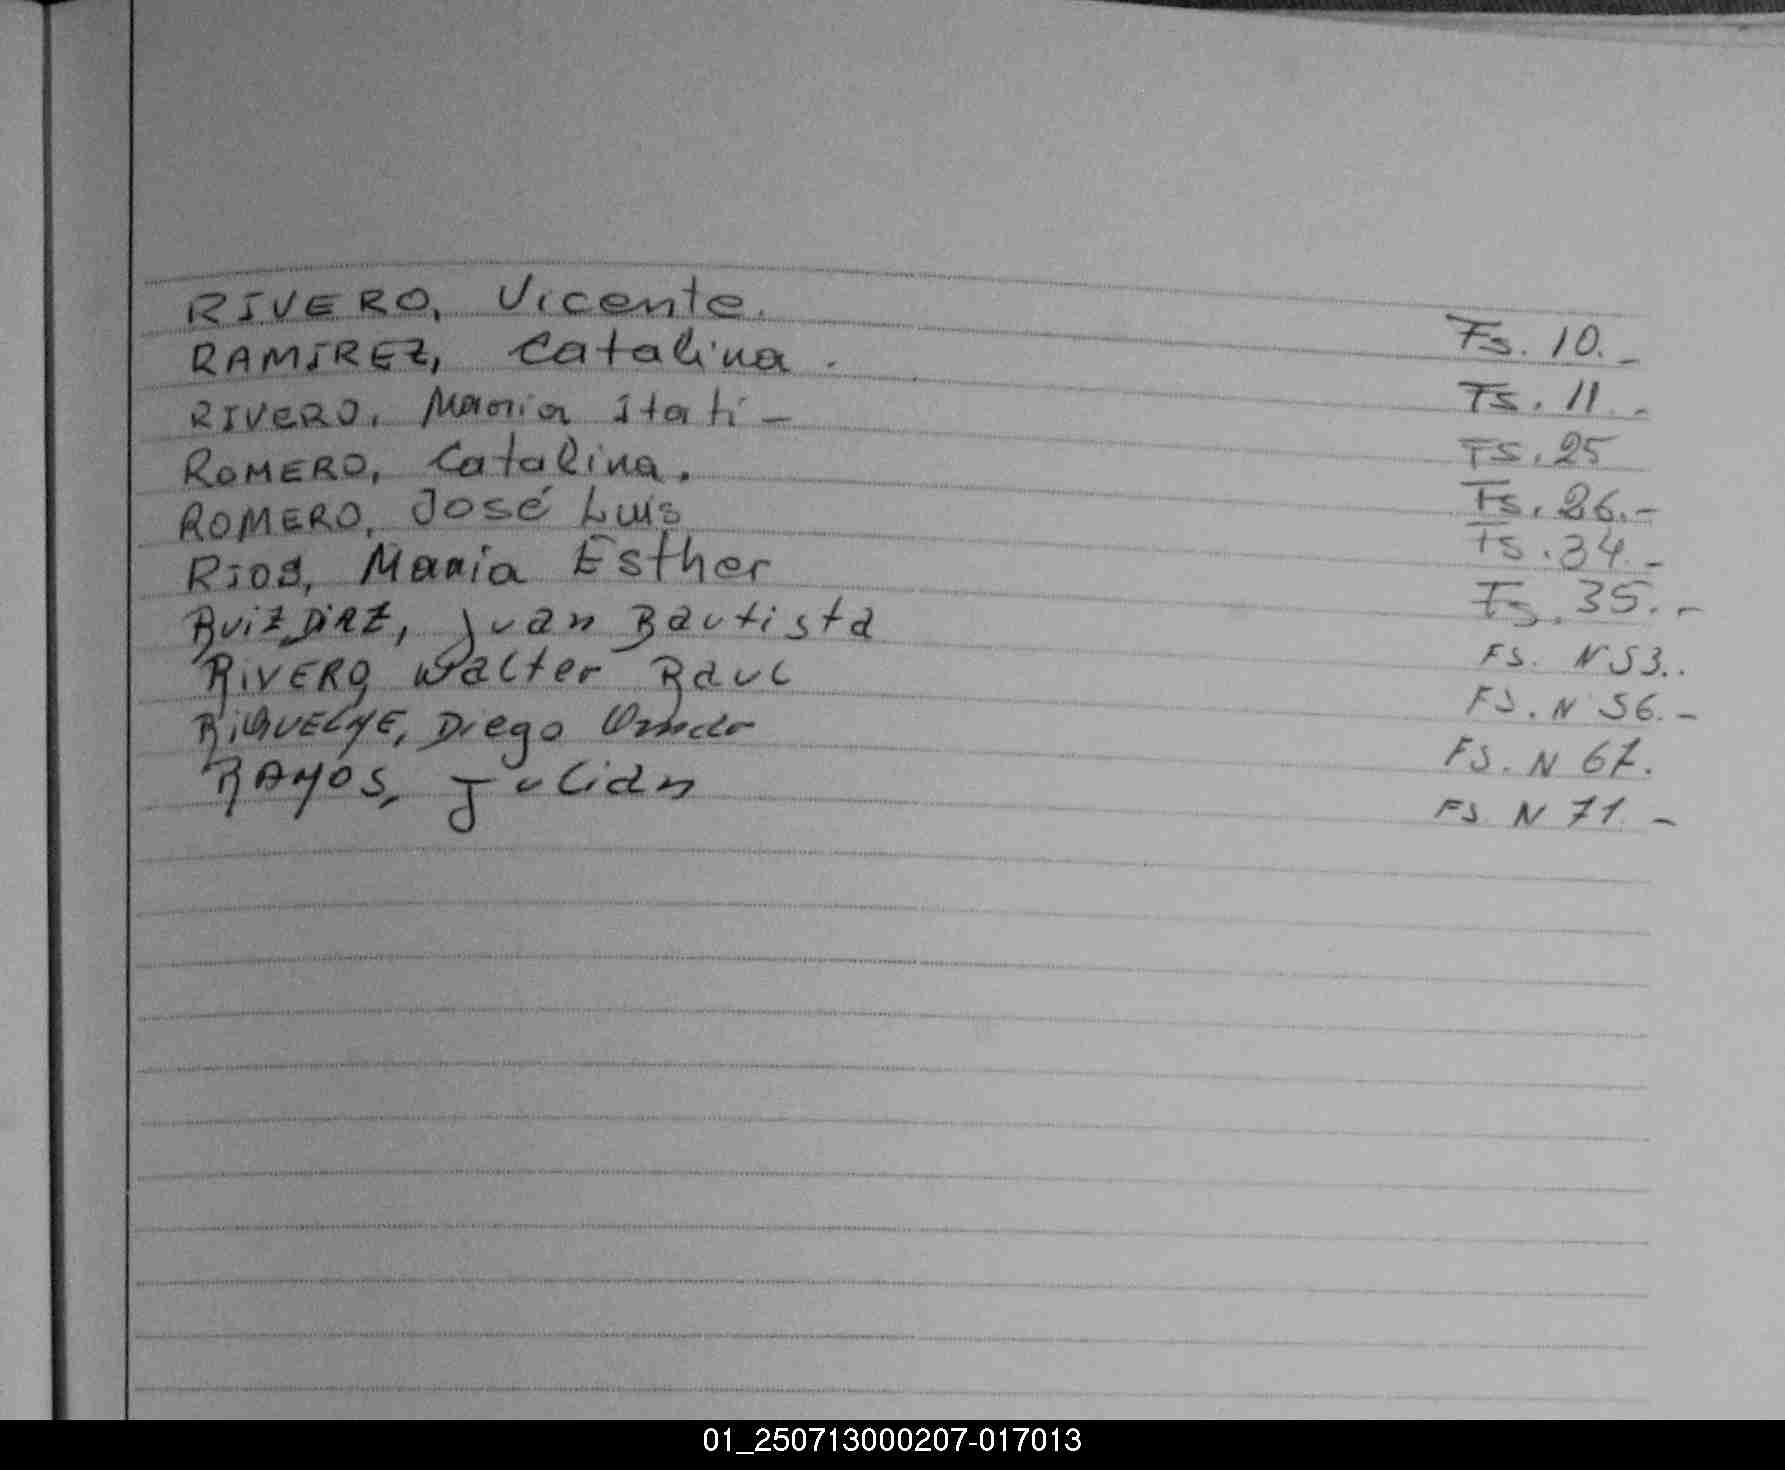 RIVERO, Vicente. Fs. 10.-
RAMIREZ, Catalina. Fs. 11.-
RIVERO, Maria Itati - Fs. 25
ROMERO, Catalina. Fs. 26.-
ROMERO, José Luis Fs. 34.-
RIOS, Maria Esther Fs. 35.-
RUIZ DIAZ, Juan Bautista FS. N 53..
RIVERO, Walter Raul FS. N 56.-
RIQUELME, Diego FS. N 67.
RAMOS, Julian FS. N 71.-
01_250713000207-017013